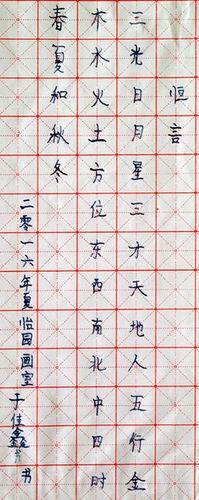 恒言
三光日月星三才天地人五行金
木水火土方位东西南北中四时
春夏和秋冬
二零一六年夏怡园画室
于佳鑫书